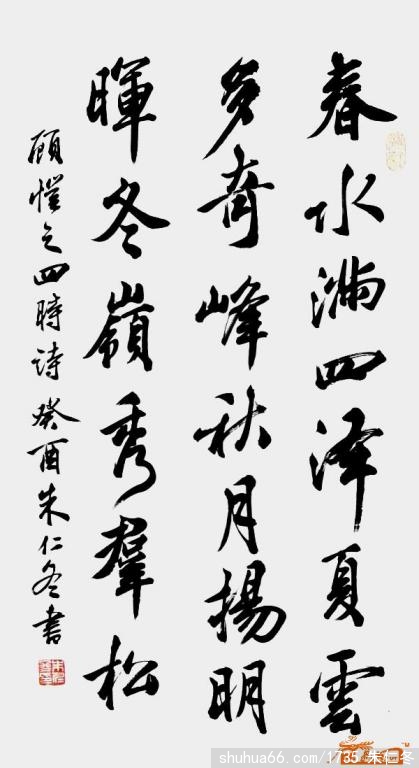 春水滿四泽夏雲
多奇峰秋月揚明
暉冬嶺秀羣松
顾愷之四時诗癸酉朱仁冬書
shuhua66.com/1735 朱仁冬